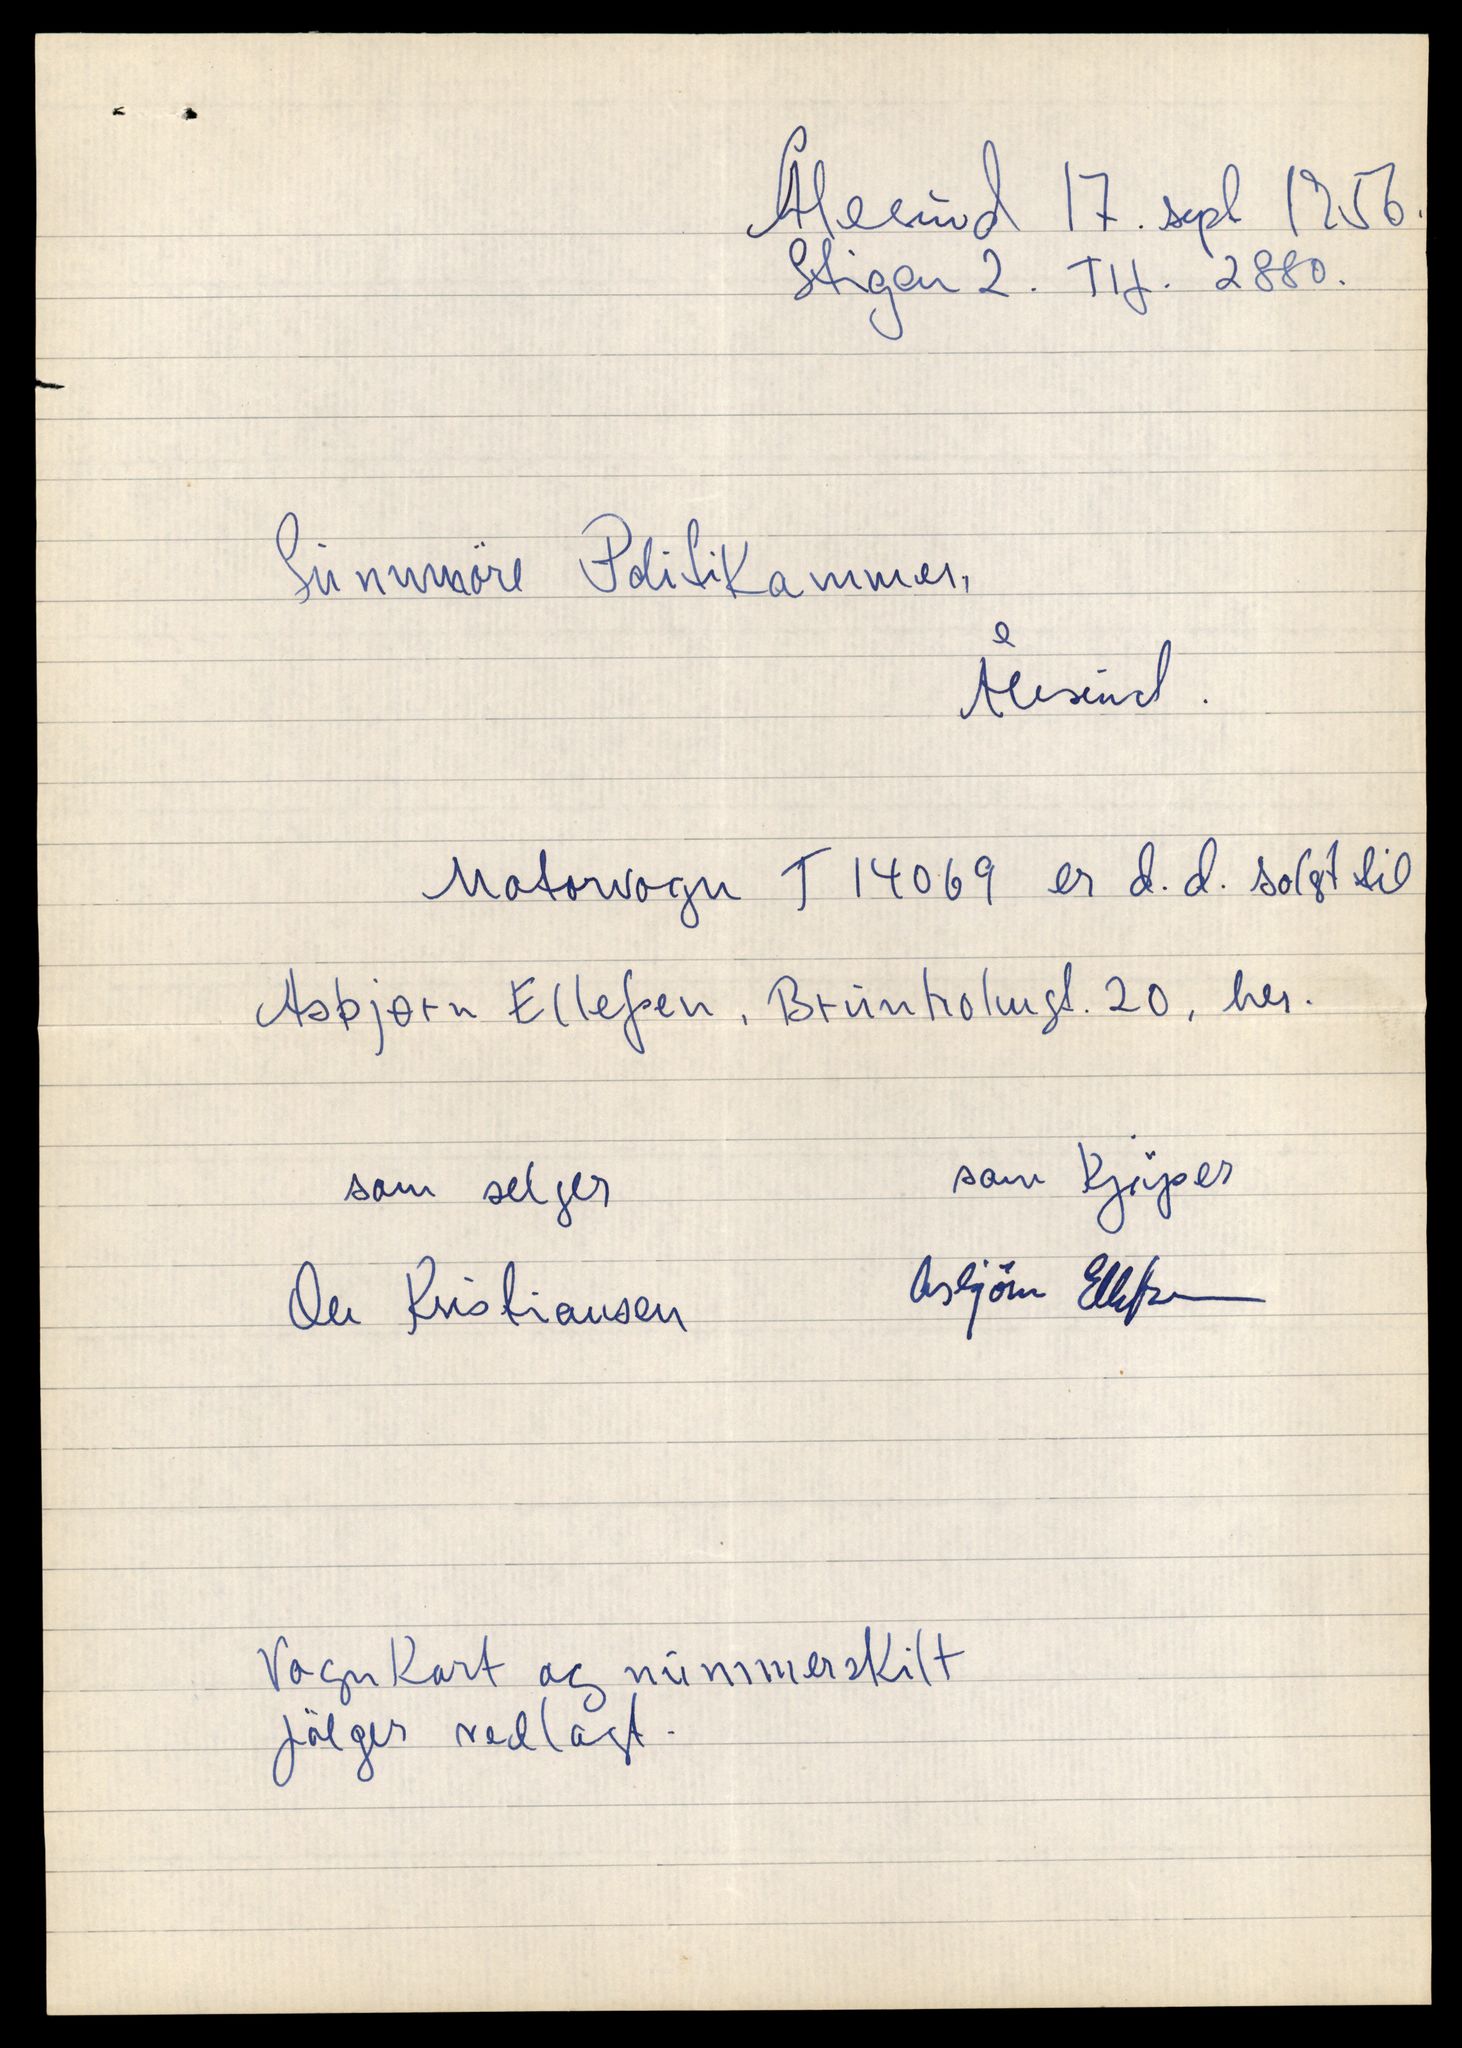 Ålesund 17. sept 1956.
Stigen 2. Tlf. 2880.
Sunnmöre Politikammer,
Ålesund.
Motorvogn T 14069 er d.d. solgt til
Asbjørn Ellefsen, Brunholmgt. 20, her.
som selger som Kjöper
Kristiansen Asbjörn Ellefsen
Vognkart og nummerskilt
fölger vedlagt.